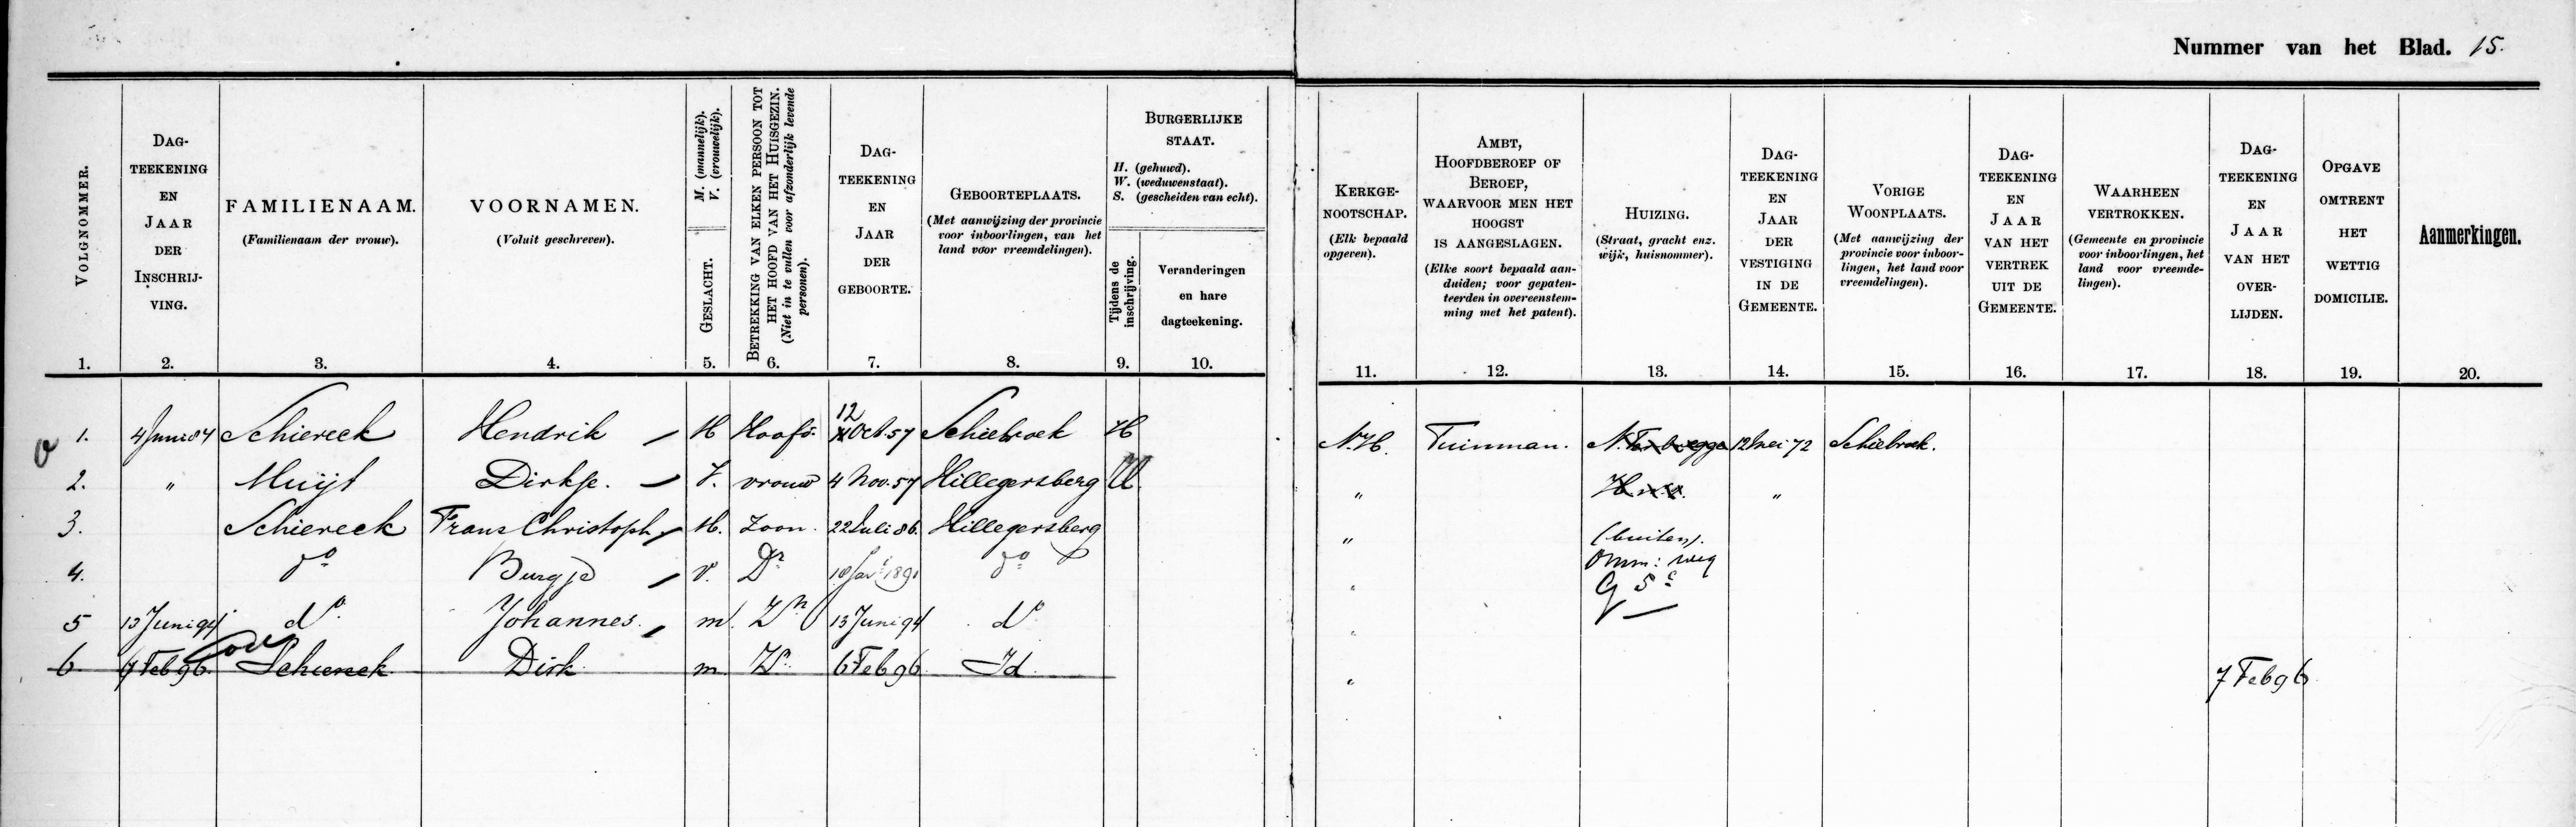 Nummer van het Blad. 15.
VOLGNOMMER.
DAG-
TEEKENING
EN
JAAR
DER
INSCHRIJ-
VING.
FAMILIENAAM.
(Familienaam der vrouw).
VOORNAMEN.
(Voluit geschreven).
GESLACHT.
M. (mannelijk).
V. (vrouwelijk).
BETREKKING VAN ELKEN PERSOON TOT
HET HOOFD VAN HET HUISGEZIN.
(Niet in te vullen voor afzonderlijk levende
personen).
DAG-
TEEKENING
EN
JAAR
DER
GEBOORTE.
GEBOORTEPLAATS.
(Met aanwijzing der provincie
voor inboorlingen, van het
land voor vreemdelingen).
BURGERLIJKE
STAAT.
H. (gehuwd).
W. (weduwenstaat).
S. (gescheiden van echt).
Tijdens de
inschrijving.
Veranderingen
en hare
dagteekening.
KERKGE-
NOOTSCHAP.
(Elk bepaald
opgeven).
AMBT,
HOOFDBEROEP OF
BEROEP,
WAARVOOR MEN HET
HOOGST
IS AANGESLAGEN.
(Elke soort bepaald aan-
duiden; voor gepaten-
teerden in overeenstem-
ming met het patent).
HUIZING.
(Straat, gracht enz.
wijk, huisnommer).
DAG-
TEEKENING
EN
JAAR
DER
VESTIGING
IN DE
GEMEENTE.
VORIGE
WOONPLAATS.
(Met aanwijzing der
provincie voor inboor-
lingen, het land voor
vreemdelingen).
DAG-
TEEKENING
EN
JAAR
VAN HET
VERTREK
UIT DE
GEMEENTE.
WAARHEEN
VERTROKKEN.
(Gemeente en provincie
voor inboorlingen, het
land voor vreemde-
lingen).
DAG-
TEEKENING
EN
JAAR
VAN HET
OVER-
LIJDEN.
OPGAVE
OMTRENT
HET
WETTIG
DOMICILIE.
Aanmerkingen.
1. 2. 3. 4. 5. 6. 7. 8. 9. 10. 11. 12. 13. 14. 15. 16. 17. 18. 19. 20.
1. 4 Juni 84 Schiereck Hendrik M Hoofd 12 Oct. 57 Schiebroek H N.H. Tuinman. N. Terbregge 12 Mei 72 Schiebroek.
2. " Muijt Dirkje. V. vrouw 4 Nov. 57 Hillegersberg " "
3. Schiereck Frans Christoph M. Zoon. 22 Juli 86. Hillegersberg " (buiten).
4. do Burgje V. Dr 1890 do " Omm: weg
G 5c
5 13 Juni 94 do Johannes. m. Zn 13 Juni 94 do "
6 7 Feb 96. Schiereck Dirk m Zn 6 Feb 96 Id. " 7 Feb 96